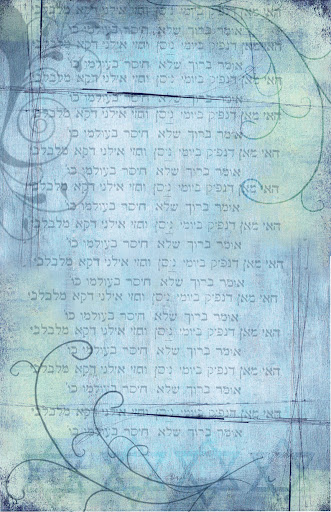 האי מאן דנפיק ביומי ניסן וחזי אילני דקא מלבלבי
אומר ברוך שלא חיסר בעולמו כו
האי מאן דנפיק ביומי ניסן וחזי אילני דקא מלבלבי
אומר ברוך שלא חיסר בעולמו כו
האי מאן דנפיק ביומי ניסן וחזי אילני דקא מלבלבי
אומר ברוך שלא חיסר בעולמו כו
האי מאן דנפיק ביומי ניסן וחזי אילני דקא מלבלבי
אומר ברוך שלא חיסר בעולמו כו
האי מאן דנפיק ביומי ניסן וחזי אילני דקא מלבלבי
אומר ברוך שלא חיסר בעולמו כו
האי מאן דנפיק ביומי ניסן וחזי אילני דקא מלבלבי
אומר ברוך שלא חיסר בעולמו כו
האי מאן דנפיק ביומי ניסן וחזי אילני דקא מלבלבי
אומר ברוך שלא חיסר בעולמו כו
האי מאן דנפיק ביומי ניסן וחזי אילני דקא מלבלבי
אומר ברוך שלא חיסר בעולמו כו
האי מאן דנפיק ביומי ניסן וחזי אילני דקא מלבלבי
אומר ברוך שלא חיסר בעולמו כו
האי מאן דנפיק ביומי ניסן וחזי אילני דקא מלבלבי
אומר ברוך שלא חיסר בעולמו כו
האי מאן דנפיק ביומי ניסן וחזי אילני דקא מלבלבי
אומר ברוך שלא חיסר בעולמו כו
האי מאן דנפיק ביומי ניסן וחזי אילני דקא מלבלבי
אומר ברוך שלא חיסר בעולמו כו